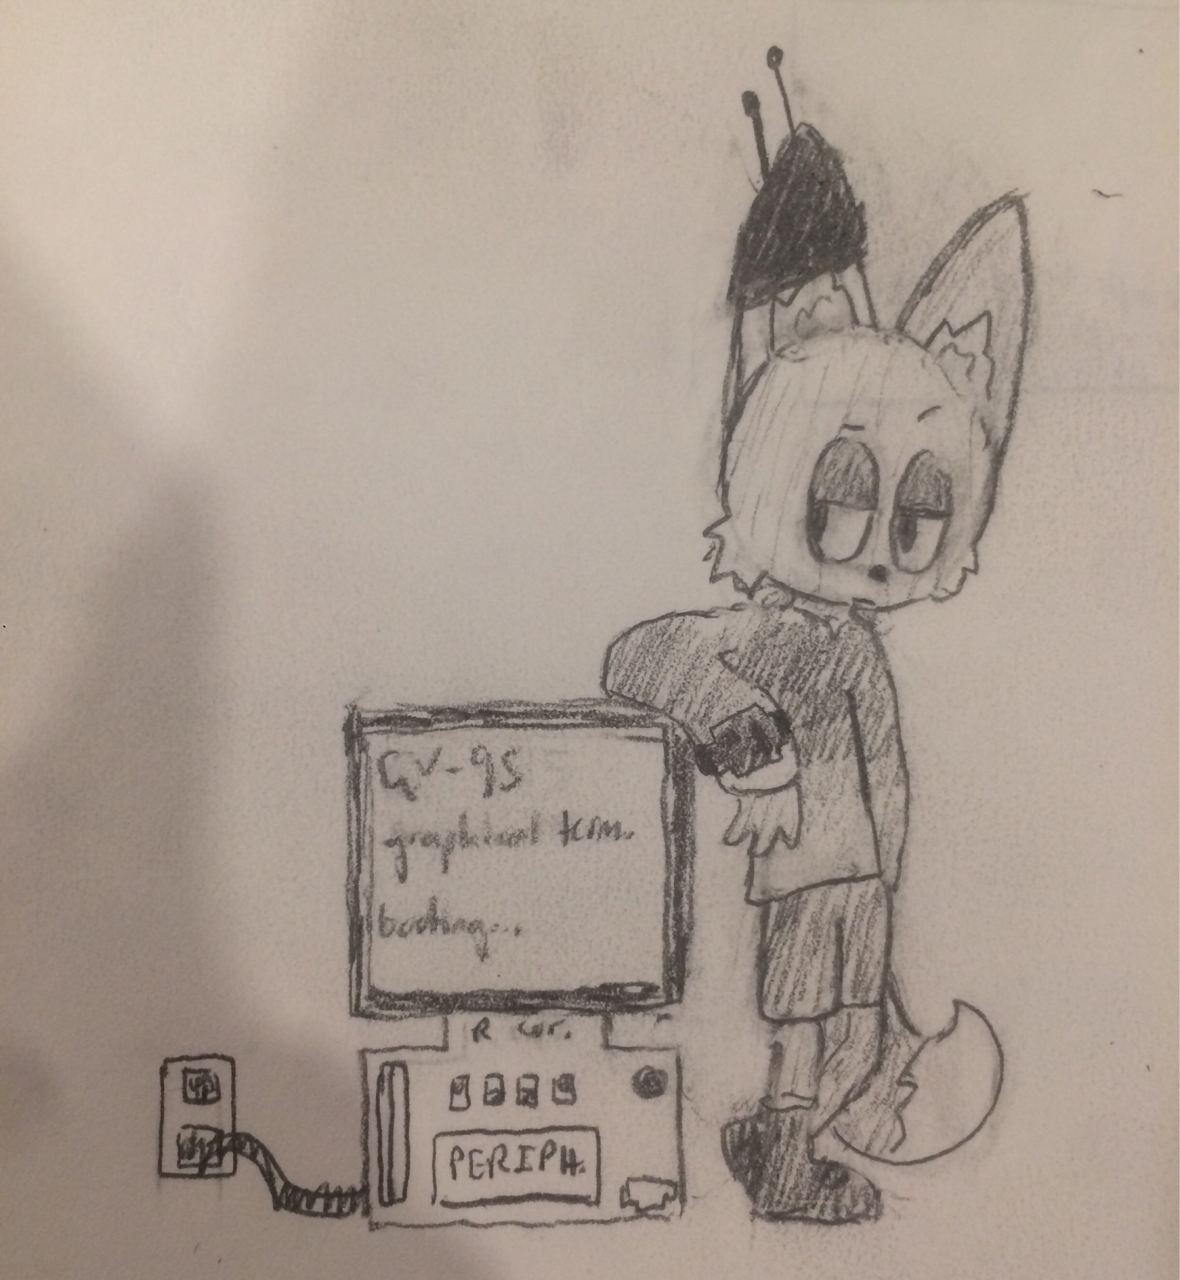 GV-95
graphical term.
booting...
R Cor.
PERIPH.